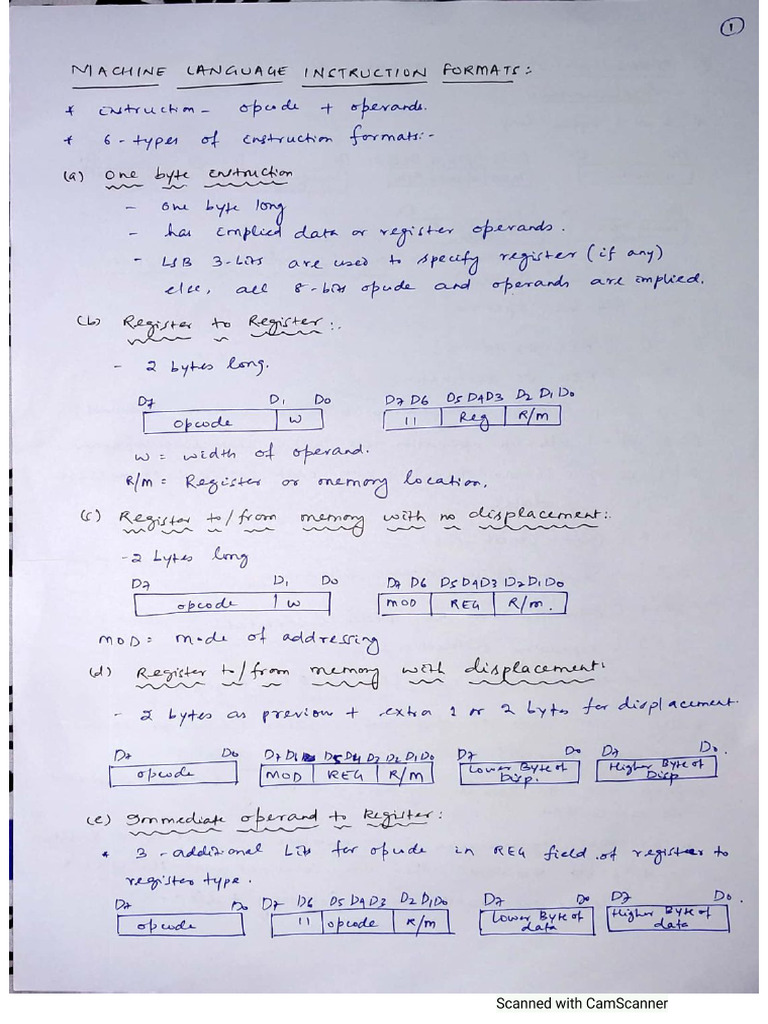 1
MACHINE LANGUAGE INSTRUCTION FORMATS:
* instruction - opcode + operands.
* 6-types of instruction formats:-
(a) One byte instruction
- One byte long
- has implied data or register operands.
- LSB 3-bits are used to specify register (if any)
else, all 8-bits opcode and operands are implied.
(b) Register to Register:.
- 2 bytes long.
D7 D1 D0 D7 D6 D5 D4 D3 D2 D1 D0
opcode W 11 Reg R/m
W = width of operand.
R/m = Register or memory location.
(c) Register to/from memory with no displacement:.
- 2 bytes long
D7 D1 D0 D7 D6 D5 D4 D3 D2 D1 D0
opcode W MOD REG R/m.
MOD = mode of addressing
(d) Register to/from memory with displacement:
- 2 bytes as previous + extra 1 or 2 bytes for displacement.
D7 D0 D7 D6 D5 D4 D3 D2 D1 D0 D7 D0 D7 D0.
opcode MOD REG R/M Lower Byte of Disp. Higher Byte of Disp
(e) Immediate operand to Register:
* 3-additional bits for opcode in REG field of register to
register type.
D7 D0 D7 D6 D5 D4 D3 D2 D1 D0 D7 D0 D7 D0.
opcode 11 opcode R/m Lower Byte of data Higher Byte of data
Scanned with CamScanner